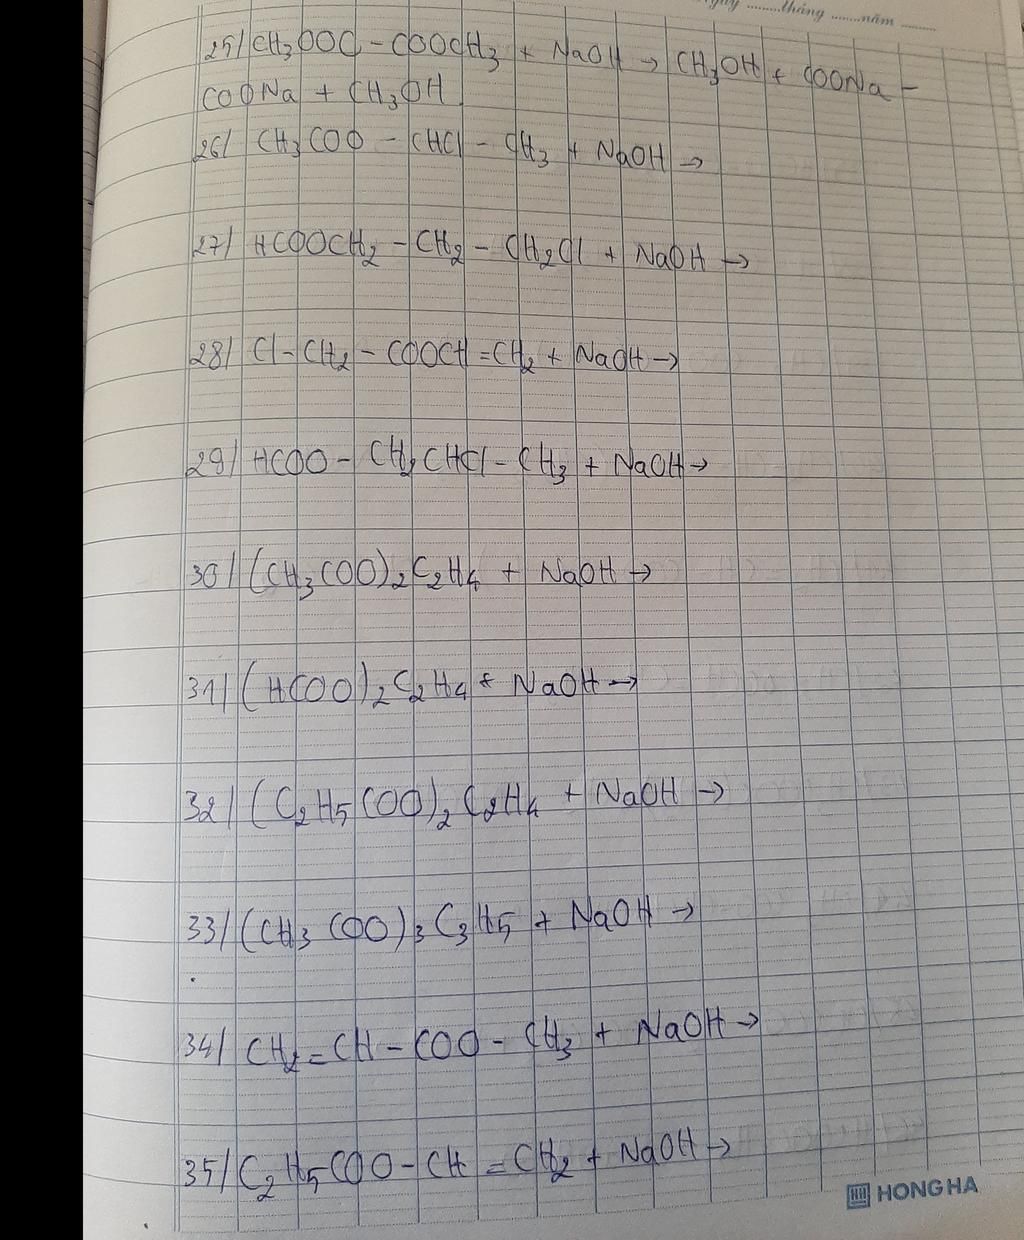 ..........tháng ........năm ........
25/ CH₃OOC - COOCH₃ + NaOH → CH₃OH + COONa -
COONa + CH₃OH
26/ CH₃COO - CHCl - CH₃ + NaOH →
27/ HCOOCH₂ - CH₂ - CH₂Cl + NaOH →
28/ Cl - CH₂ - COOCH = CH₂ + NaOH →
29/ HCOO - CH₂CHCl - CH₃ + NaOH →
30/ (CH₃COO)₂C₂H₄ + NaOH →
31/ (HCOO)₂C₂H₄ + NaOH →
32/ (C₂H₅COO)₂C₂H₄ + NaOH →
33/ (CH₃COO)₃C₃H₅ + NaOH →
34/ CH₂ = CH - COO - CH₃ + NaOH →
35/ C₂H₅COO - CH = CH₂ + NaOH →
HONG HA